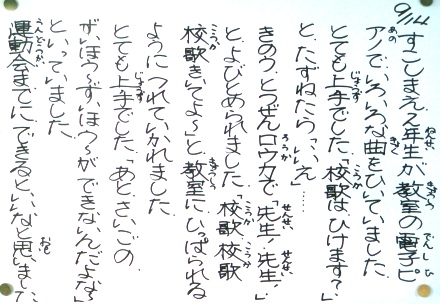 9/14
すこしまえ、2年生が、教室の電子ピ
アノで、いろいろな曲をひいていました。
とても上手でした。「校歌は、ひけます？」
と、たずねたら、「いいえ」……
きのう、とつぜんロウカで「先生！先生！」
とよびとめられました。「校歌、校歌
校歌きいてよ〜」と、教室に、ひっぱられる
ようにつれていかれました。
とても上手でした。「あと、さいごの
が、いほう〜ず、いほう〜が、できないんだよな〜」
といっていました。
運動会までにできるといいなと思いました。